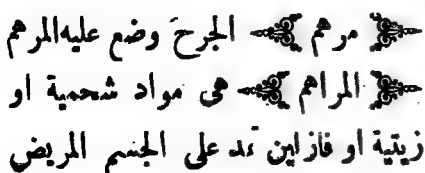 مرهم الجرحَ وضع عليه المرهم
المراهم هى مواد شحمية او
زيتية او فازلين تمد على الجسم المريض